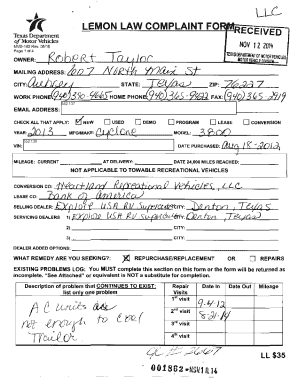 LLC
Texas Department
of Motor Vehicles
LEMON LAW COMPLAINT FORM
RECEIVED
NOV 12 2014
OWNER: Robert Taylor
MAILING ADDRESS: 1607 North Main St
CITY: Aubrey STATE: Texas ZIP: 76227
WORK PHONE: HOME PHONE: FAX:
EMAIL ADDRESS:
CHECK ALL THAT APPLY: NEW USED DEMO PROGRAM LEASE CONVERSION
YEAR: 2013 MFG/MAKE: Cyclone MODEL: 3800
VIN: DATE PURCHASED: Aug 18-2012
MILEAGE: CURRENT AT DELIVERY: DATE 24,000 MILES REACHED:
NOT APPLICABLE TO TOWABLE RECREATIONAL VEHICLES
CONVERSION CO: Heartland Recreational Vehicles, LLC
LEASE CO: Bank of America
SELLING DEALER: Explore USA RV Supercenter Denton, Texas
SERVICING DEALERS 1) Explore USA RV Supercenter Denton, Texas
2) CITY:
3) CITY:
DEALER ADDED OPTIONS:
WHAT REMEDY ARE YOU SEEKING? REPURCHASE/REPLACEMENT OR REPAIRS
EXISTING PROBLEMS LOG: You MUST complete this section on this form or the form will be returned as
incomplete. "See Attached" or equivalent is NOT a substitute for completion.
Description of problem that CONTINUES TO EXIST:
list only one problem
Repair Visits Date In Date Out Mileage
1st visit 9-4-12
2nd visit 8-21-14
3rd visit
4th visit
AC units are
not enough to cool
Trailer
LL $35